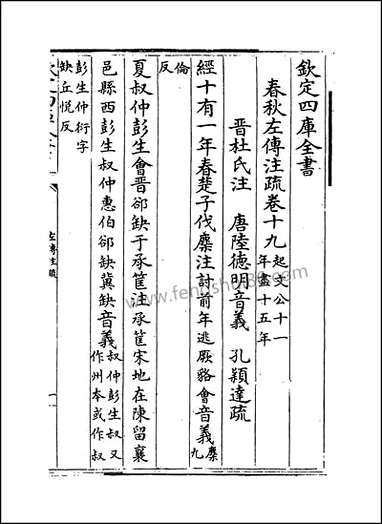 欽定四庫全書
春秋左傳注疏卷十九起文公十一
年盡十五年
晉杜氏注　唐陸德明音義　孔穎達疏
經十有一年春楚子伐麇注討前年逃厥貉會音義麇
九
倫
反
夏叔仲彭生會晉郤缺于承筐注承筐宋地在陳留襄
邑縣西彭生叔仲惠伯郤缺冀缺音義叔仲彭生叔又
作州本或作叔
彭生仲衍字
缺丘悅反